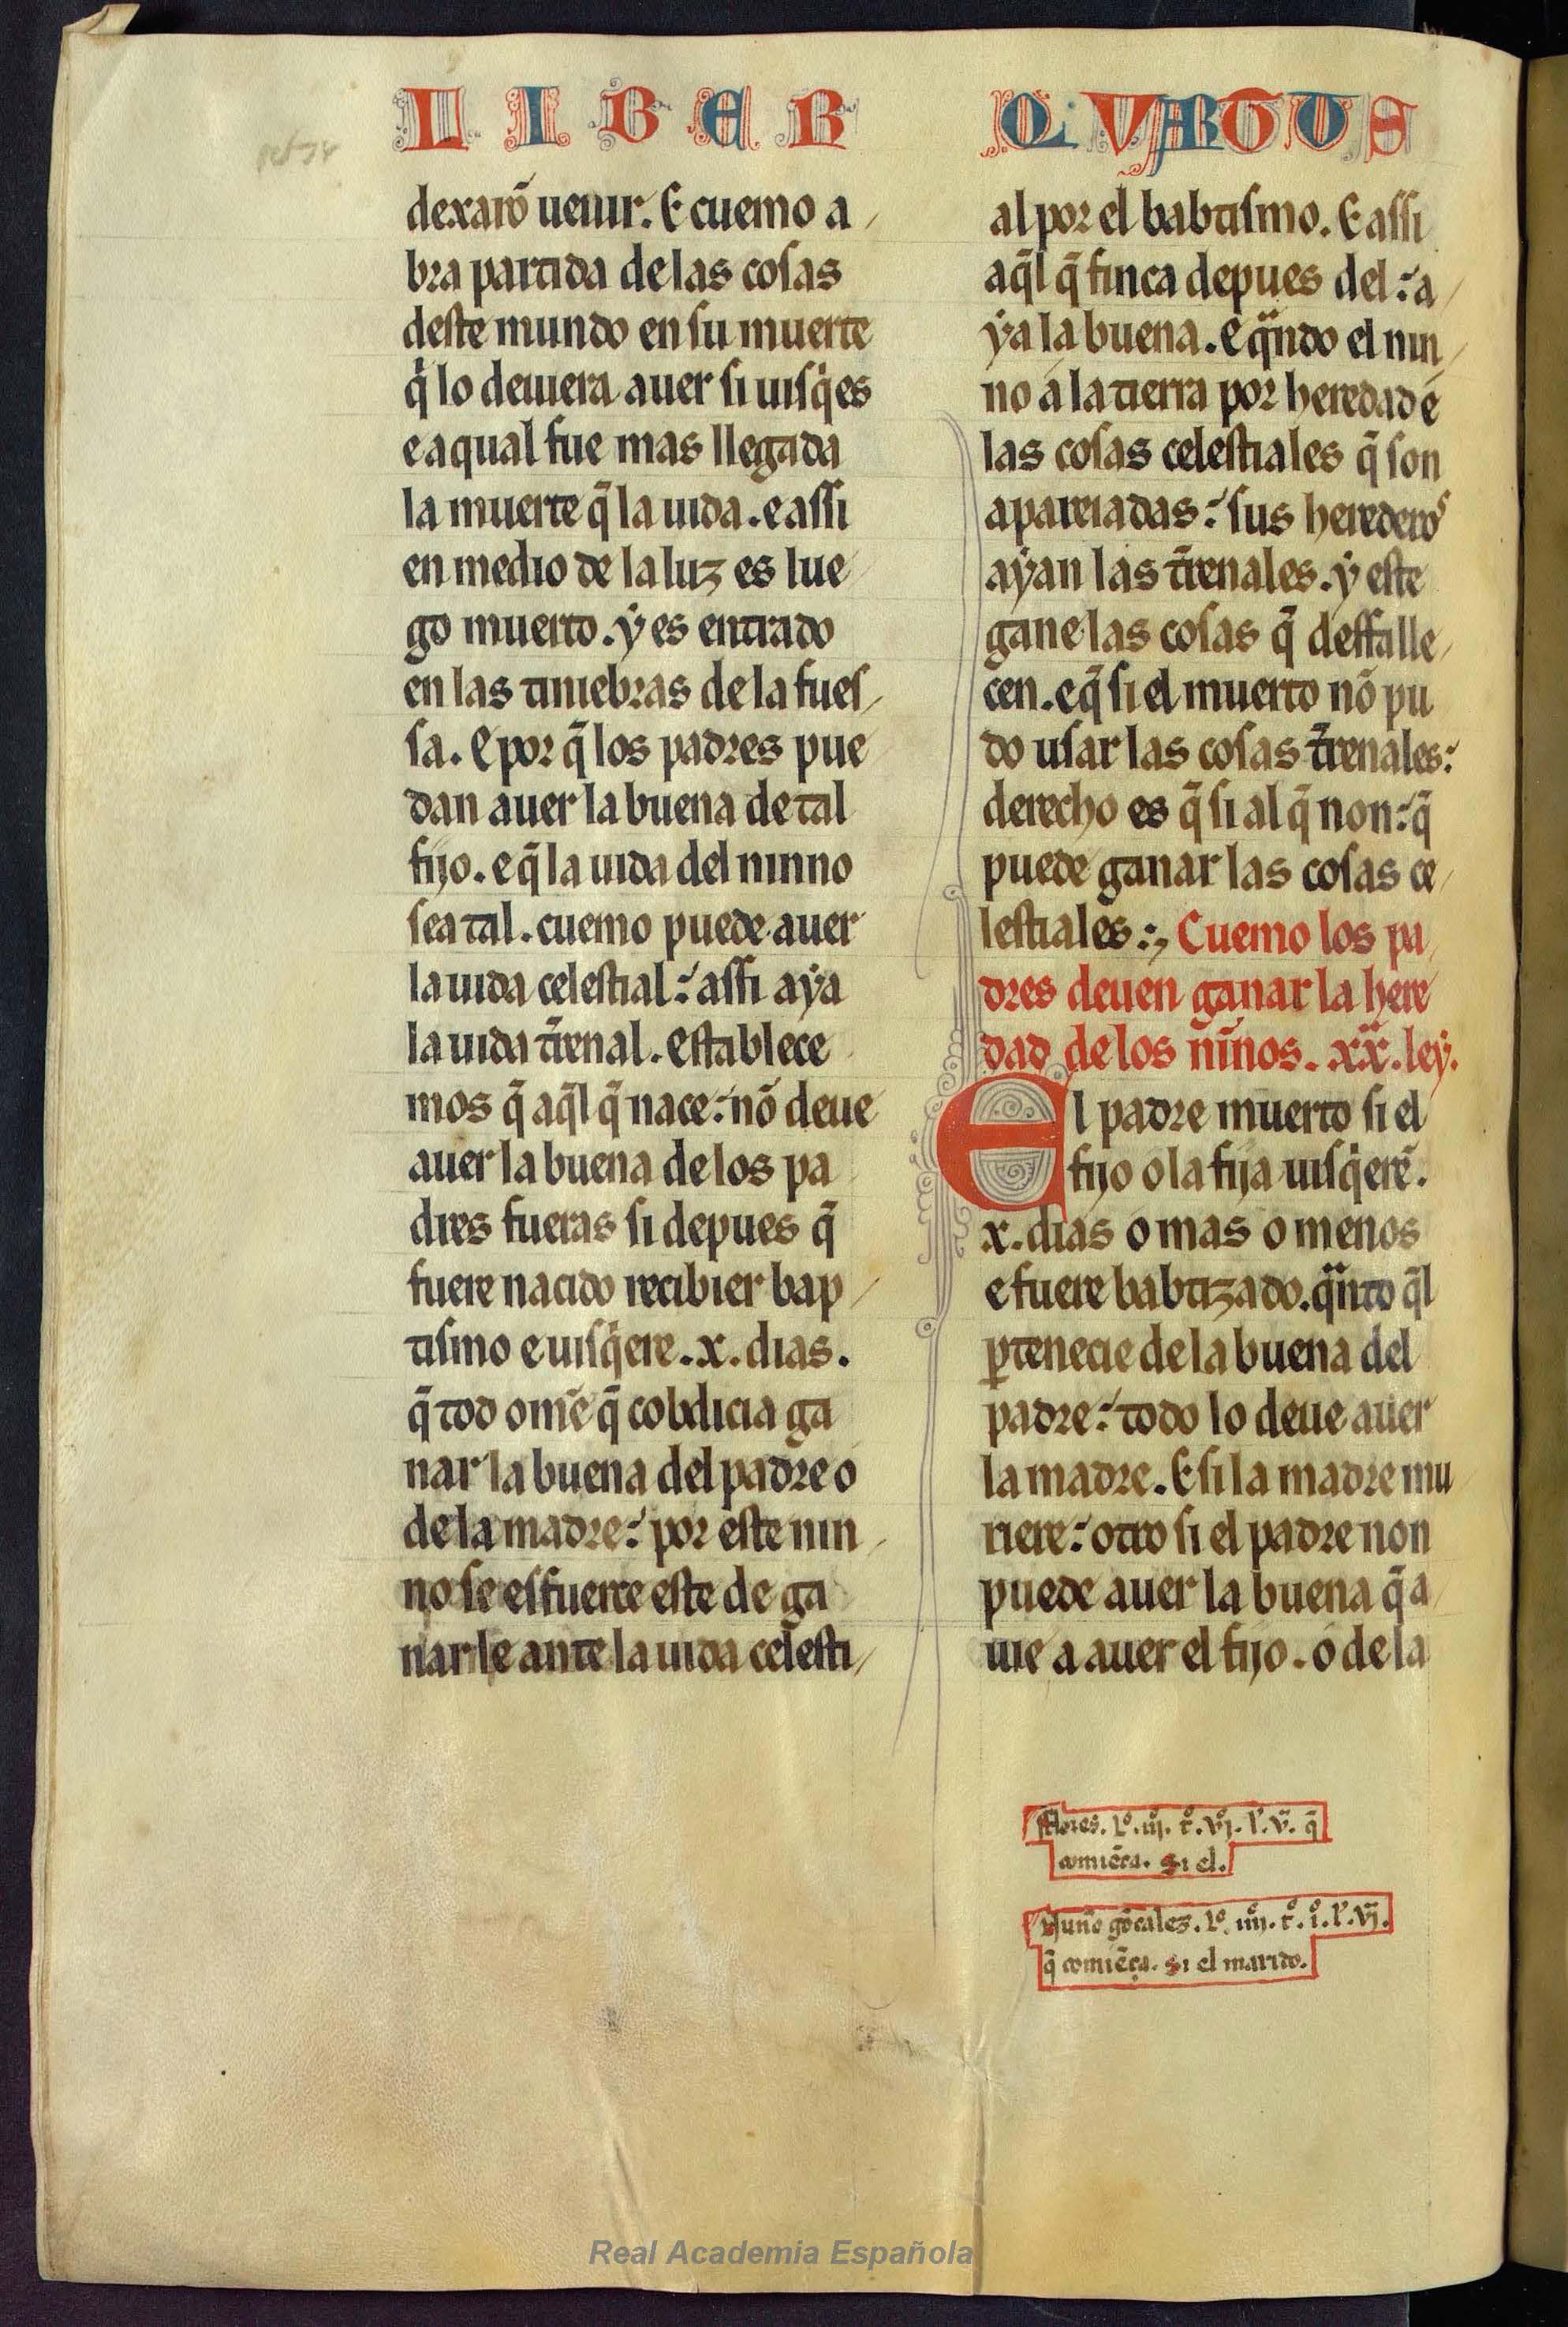 LIBER QUARTUS
dexarō uenir. E cuemo a
bra partida delas cosas
deste mundo en su muerte
q̇ lo deuiera auer si uisq̇es
e aqual fue mas llegada
la muerte q̄ la uida. e assi
en medio de la luz es lue
go muerto. ẏ es entrado
en las tiniebras de la fues
sa. E por q̄ los padres pue
dan auer la buena de tal
fijo. e q̄ la uida del ninno
sea tal. cuemo puede auer
la uida celestial: assi aẏa
la uida t̄renal. establece
mos q̄ aq̄l q̄ nace: nō deue
auer la buena de los pa
dres fueras si depues q̄
fuere nacido recibier bap
tismo e uisq̇ere. x. dias.
q̄ tod omē q̄ cobdicia ga
nar la buena del padre o
de la madre: por este nin
no se esfuerce este de ga
narle ante la uida celesti
al por el babtismo. E assi
aq̄l q̄ finca depues del: a
ẏa la buena. e qᷓndo el nin
no á la tierra por heredad é
las cosas celestiales q̄ son
apareiadas: sus herederos
aẏan las t̄renales. ẏ este
gane las cosas q̄ deffalle
cen. e q̄ si el muerto nō pu
do usar las cosas t̄renales:
derecho es q̄ si al q̄ non: q̄
puede ganar las cosas ce
lestiales:, Cuemo los pa
dres deuen ganar la here
dad de los nīnos. .xx. ley.
El padre muerto si el
fijo o la fija uisq̇erē.
x. dias o mas o menos
e fuere babtizado. qᷓnto q̄l
ꝑtenecie de la buena del
padre: todo lo deue auer
la madre. E si la madre mu
riere: otro si el padre non
puede auer la buena q̄ a
uie a auer el fijo. o de la
Flores. lº. iij. tº. vj. l'. v. q̄
comiēça. si el.
Nuño gōcalez. lº. iiij. tº. i. l'. vj.
q̄ comiēça. si el marido.
Real Academia Española